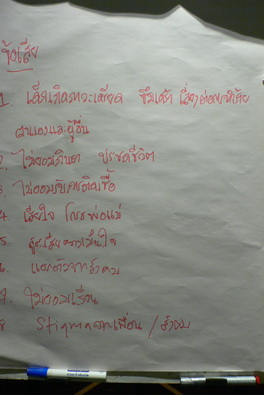 ข้อเสีย
1. เด็กเกิดภาวะเครียด ซึมเศร้า เสี่ยงต่อการทำร้าย
ตนเองและผู้อื่น
2. ไม่ยอมกินยา ประชดชีวิต
3. ไม่ยอมรับการติดเชื้อ
4. เสียใจ โกรธพ่อแม่
5. สูญเสียความมั่นใจ
6. แยกตัวจากสังคม
7. ไม่ยอมเรียน
8 Stigma จากเพื่อน / สังคม